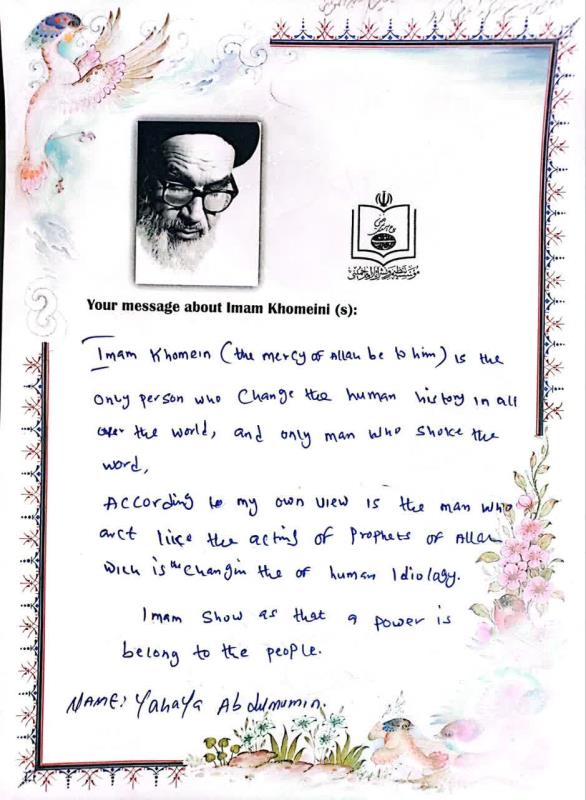 Your message about Imam Khomeini (s):
Imam Khomein (the mercy of Allah be to him) is the
only person who change the human history in all
over the world, and only man who shoke the
word,
According to my own view is the man who
arct like the acting of Prophets of Allah
wich is the changin the of human Idiology.
Imam show as that a power is
belong to the people.
NAME: Yahaya Abdulmumin